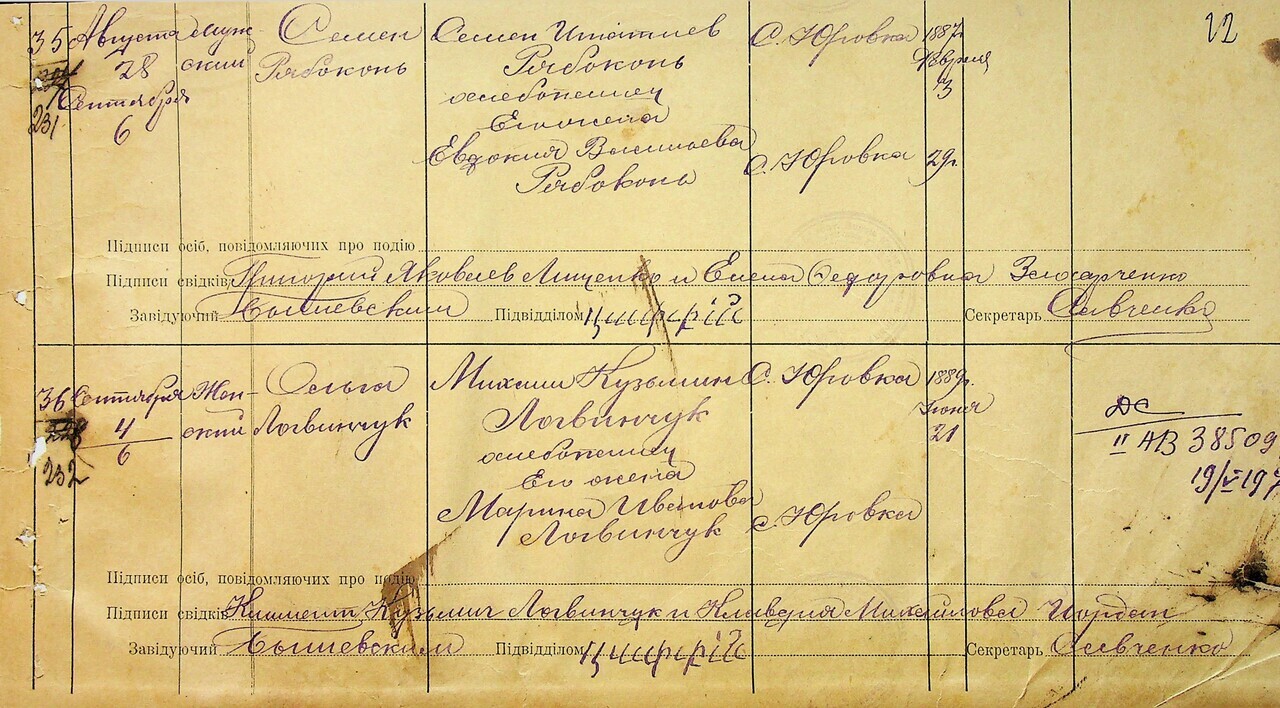 22
35 Августа муж- Семен Семен Игнатиев С. Юровка 1887г.
28 ский Рябоконь Рябоконь Февраля
Сентября хлебопашец 3
231 6 Его жена
Евдокия Васильева С. Юровка 29г.
Рябоконь
Підписи осіб, повідомляючих про подію
Підписи свідків Григорий Яковлев Лищенко и Елена Федоровна
Завідуючий Підвідділом Секретарь Савченко
36 Сентября Жен- Ольга Михаил Кузьмин С. Юровка 1889г.
4 ский Логвинчук Логвинчук Июня
6 хлебопашец 21
232 Его жена
Марина Иванова С. Юровка
Логвинчук
ДС
II АВ 38509
19/V-197
Підписи осіб, повідомляючих про подію
Підписи свідків Климент Кузьмич Логвинчук и Клавдия Михайлова Иордан
Завідуючий Підвідділом Секретарь Савченко